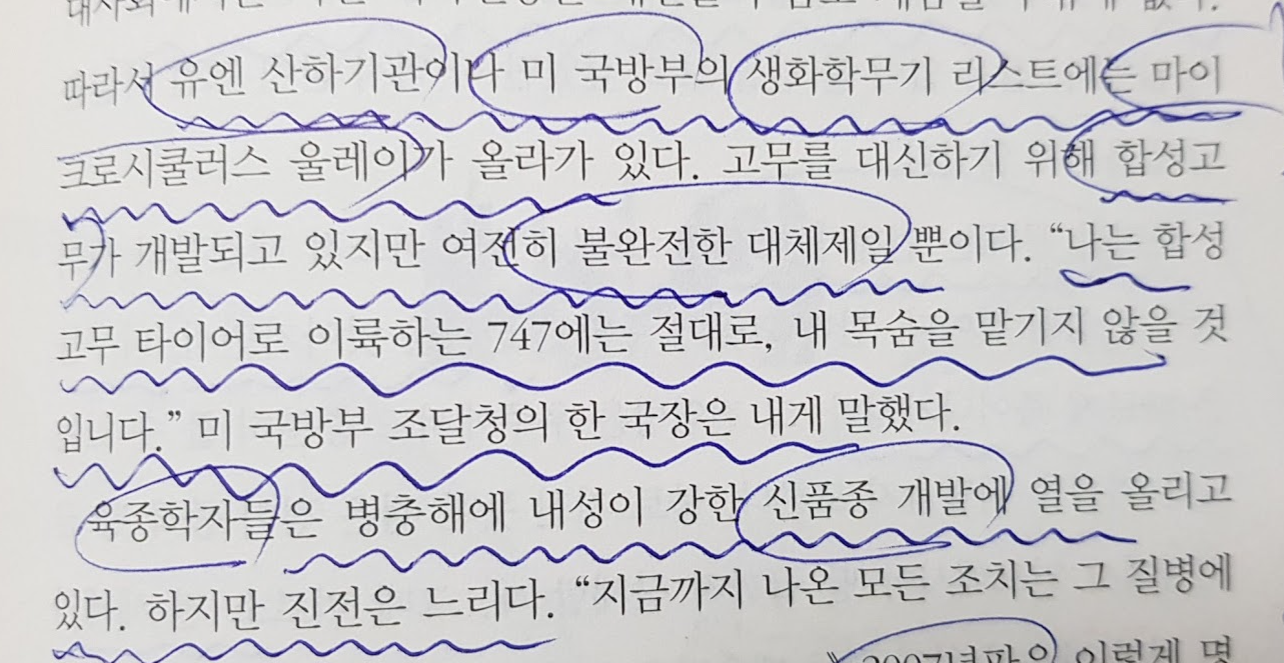 따라서 유엔 산하기관이나 미 국방부의 생화학무기 리스트에는 마이
크로시쿨러스 울레이가 올라가 있다. 고무를 대신하기 위해 합성고
무가 개발되고 있지만 여전히 불완전한 대체제일 뿐이다. “나는 합성
고무 타이어로 이륙하는 747에는 절대로, 내 목숨을 맡기지 않을 것
입니다.” 미 국방부 조달청의 한 국장은 내게 말했다.
육종학자들은 병충해에 내성이 강한 신품종 개발에 열을 올리고
있다. 하지만 진전은 느리다. “지금까지 나온 모든 조치는 그 질병에
이렇게